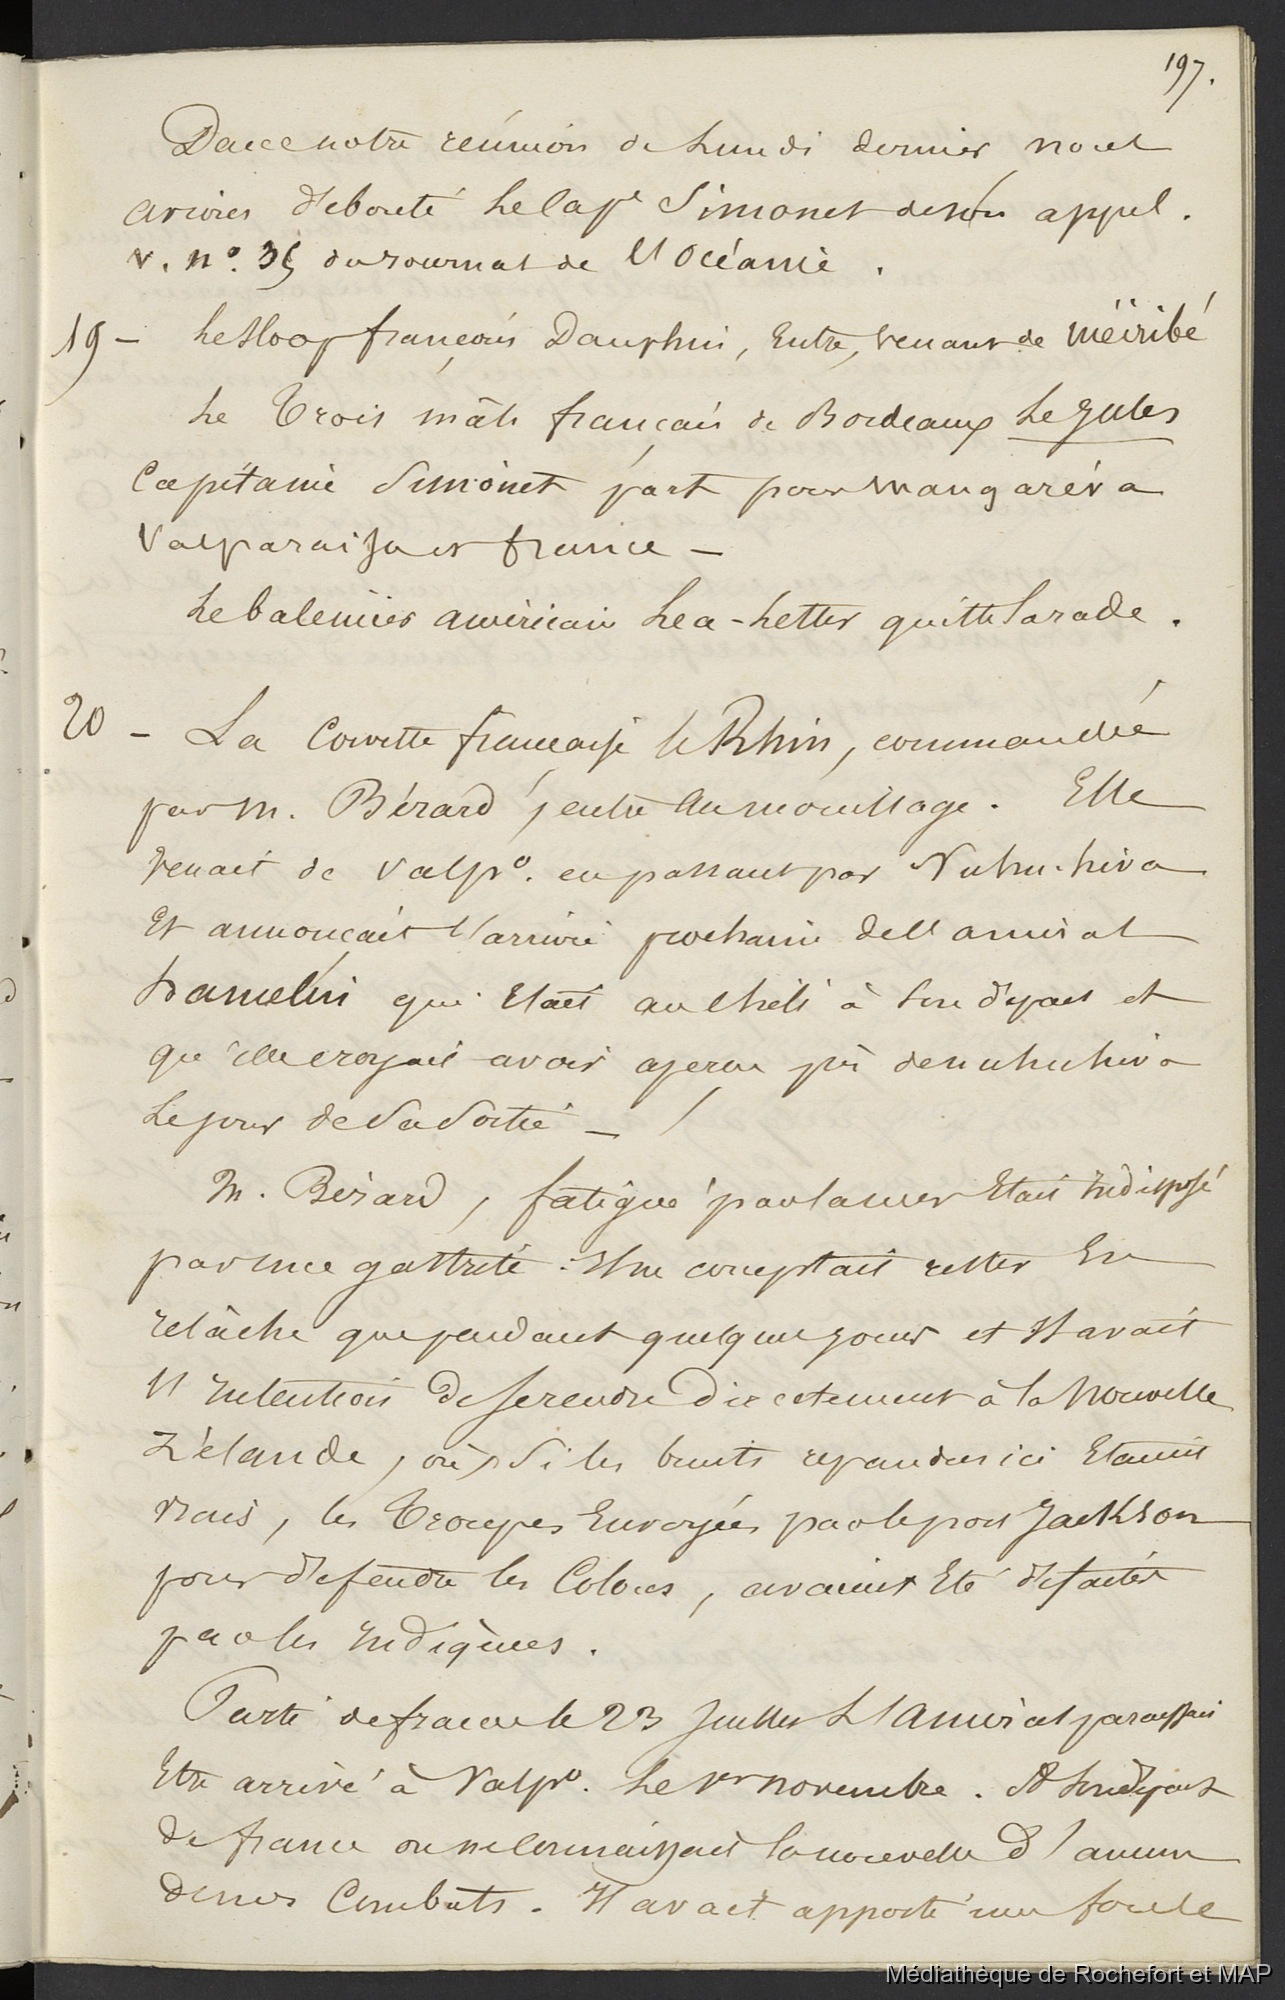 197.
Dans notre réunion de Lundi dernier nous
avions débouté le Cape Simonet de son appel.
v. n°. 35 du Journal de l'Océanie.
19 - Le Sloop français Dauphin, Entre, venant de
Le Trois mâts français de Bordeaux Le Jules
Capitaine Simonet part pour Mangaréva
Valparaiso et france -
Le baleinier américain quitte la rade.
20 - La Corvette française le Rhin, commandée
par M. Bérard, entre au mouillage. Elle
venait de Valpo. en passant par Nuhu-hiva
Et annonçait l'arrivée prochaine de l'amiral
hamelin qui Etait au Chili à son départ et
qu'elle croyait avoir aperçu près de nuhuhiva
Le jour de Sa Sortie -
M. Bérard, fatigué par la mer Etait Indisposé
par une gastrite. Il ne comptait rester En
relâche que pendant quelques jours et Il avait
l'Intention de se rendre directement à la Nouvelle
Zélande, où, Si les bruits repandus ici Etaient
vrais, les Troupes Envoyées par le port Jackson
pour défendre les Colons, avaient Eté défaites
par les Indigènes.
Parti de france le 23 Juillet L'Amiral paraissait
Etre arrivé à Valpo. Le 1er novembre. A Son départ
de france on ne Connaissait la nouvelle d'aucun
de nos Combats. Il avait apporté une foule
Médiathèque de Rochefort et MAP